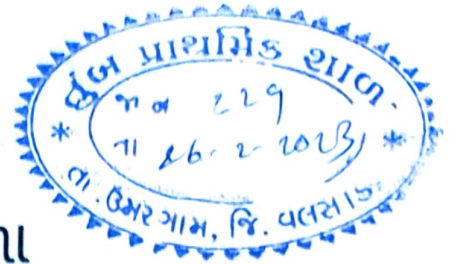 હુંબ પ્રાથમિક શાળા
જા નં ૨૨૧
તા ૧6-૨-૨૦૨૩
તા. ઉમરગામ, જિ. વલસાડ.